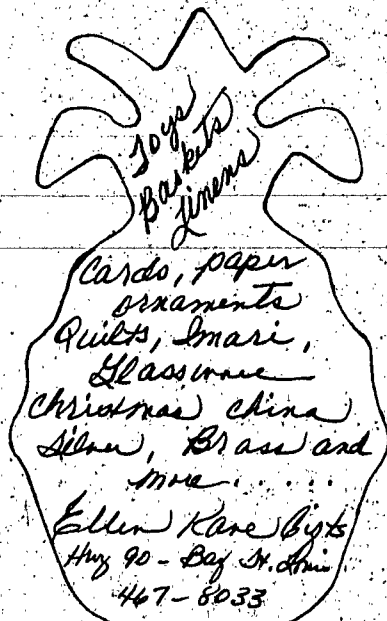 Toys
Baskets
Linens
Cards, paper
ornaments
Quilts, Imari,
Glassware
Christmas china
Silver, Brass and
more.....
Ellen Kane Gifts
Hwy 90 - Bay St. Louis
467-8033